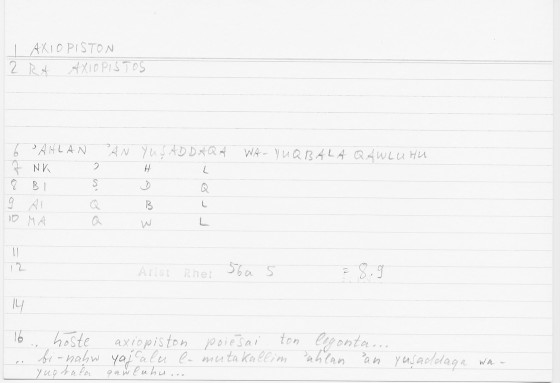 1 AXIOPISTON
2 RA AXIOPISTOS
6 ʾAHLAN ʾAN YUṢADDAQA WA-YUQBALA QAWLUHU
7 NK ʾ H L
8 BI Ṣ D Q
9 AI Q B L
10 MA Q W L
11
12 Arist Rhet 56a 5 = 8,9
14
16 .. hōste axiopiston poiēsai ton legonta...
.. bi-nahw yaǧʿalu l-mutakallim ʾahlan ʾan yuṣaddaqa wa-
yuqbala qawluhu...